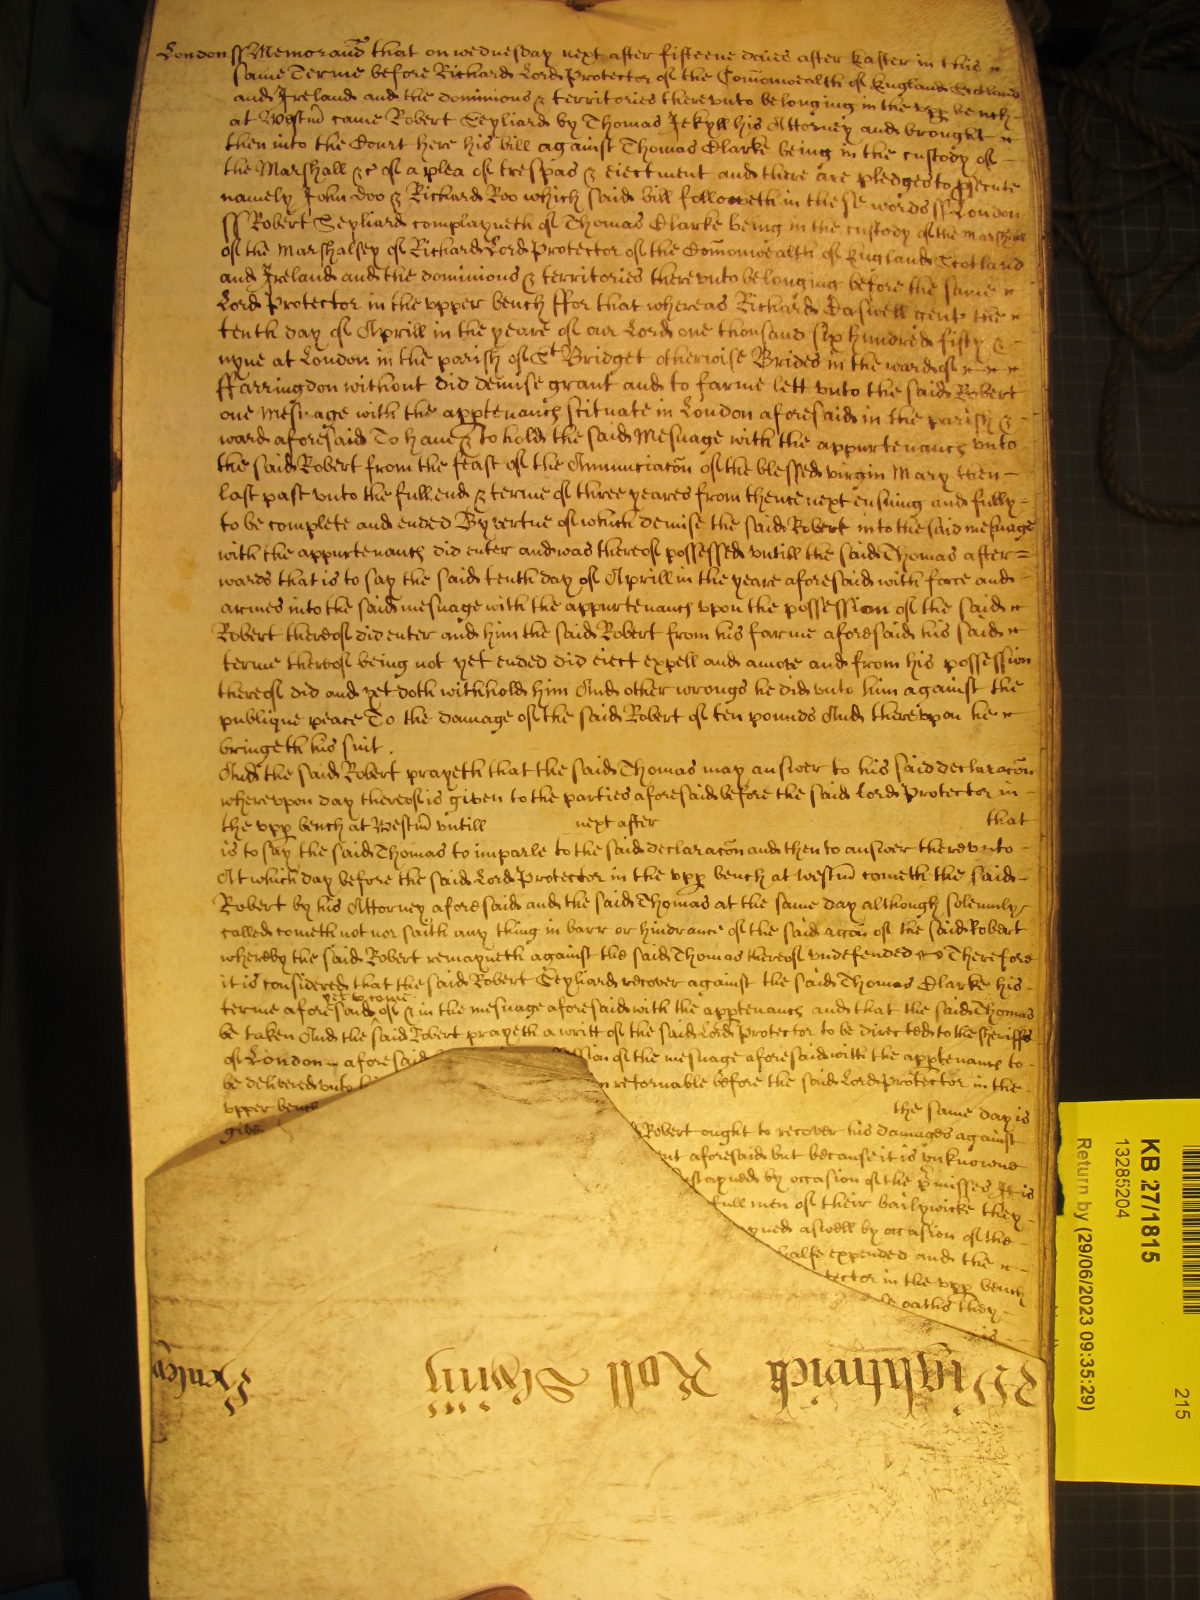 London ss Memorand that on wednesday next after fifteene daies after Easter in this
same Terme before Richard Lord Protector of the Comonwealth of England Scotland
and Ireland and the dominions & territories therevnto belonging in the vpp bench
at Westm came Robert Seyliard by Thomas Jekyll his Attorney and brought
then into the Court here his bill against Thomas Clarke being in the custody of
the Marshall &c of a plea of trespas & eiectment and there are pledges to psecute
namely John Doo & Richard Roo which said bill followeth in these words ss London
ss Robert Seyliard complayneth of Thomas Clarke being in the custody of the Marshall
of the Marshalsey of Richard Lord Protector of the Comonwealth of England Scotland
and Ireland and the dominions & territories therevnto belonging before the same
Lord Protector in the vpper bench ffor that whereas Richard Caswell gent the
tenth day of Aprill in the yeare of our Lord one thousand six hundred fifty &
nyne at London in the parish of St Bridget otherwise Brides in the ward of
ffarringdon without did demise grant and to farme lett vnto the said Robert
one Mesuage with the apptenancs scituate in London aforesaid in the parish &
ward aforesaid To haue & to hold the said Mesuage with the appurtenancs vnto
the said Robert from the feast of the Annunciacon of the blessed virgin Mary then
last past vnto the full end & terme of three yeares from thence next ensuing and fully
to be complete and ended By vertue of which demise the said Robert into the said mesuage
with the appurtenancs did enter and was thereof possessed vntill the said Thomas after=
wards that is to say the said tenth day of Aprill in the yeare aforesaid with force and
armes into the said mesuage with the appurtenancs vpon the possession of the said
Robert thereof did enter and him the said Robert from his farme aforesaid his said
terme thereof being not yet ended did eiect expell and amove and from his possession
thereof did and yet doth withhold him And other wrongs he did vnto him against the
publique peace To the damage of the said Robert of ten pounds And therevpon he
bringeth his suit .
And the said Robert prayeth that the said Thomas may answer to his said declaracon
wherevpon day thereof is given to the parties aforesaid before the said Lord Protector in
the vpp bench at Westm vntill next after that
is to say the said Thomas to imparle to the said declaracon and then to answer therevnto
At which day before the said Lord Protector in the vpp bench at westm cometh the said
Robert by his Attorney aforesaid and the said Thomas at the same day although solemnly
called cometh not nor saith any thing in barr or hindrance of the said accon of the said Robert
whereby the said Robert remayneth against the said Thomas thereof vndefended Therefore
it is considered that the said Robert Seyliard recover against the said Thomas Clarke his
yet to come
terme aforesaid of & in the mesuage aforesaid with the apptenancs and that the said Thomas
be taken And the said Robert prayeth a writt of the said Lord Protector to be directed to the Sheriffs
of London aforesaid of the mesuage aforesaid with the apptenancs to
be delivered vnto retornable before the said Lord Protector in the
vpper bench the same day is
given Robert ought to recover his damages against
aforesaid but because it is vnknowne
by occasion of the pmisses It is
full men of their bailywicke they
aswell by occasion of the
halfe expended and the
in the vpp bench
oaths they
is
Wightwick Roll
KB 27/1815
13285204
Return by (29/06/2023 09:35:29)
215